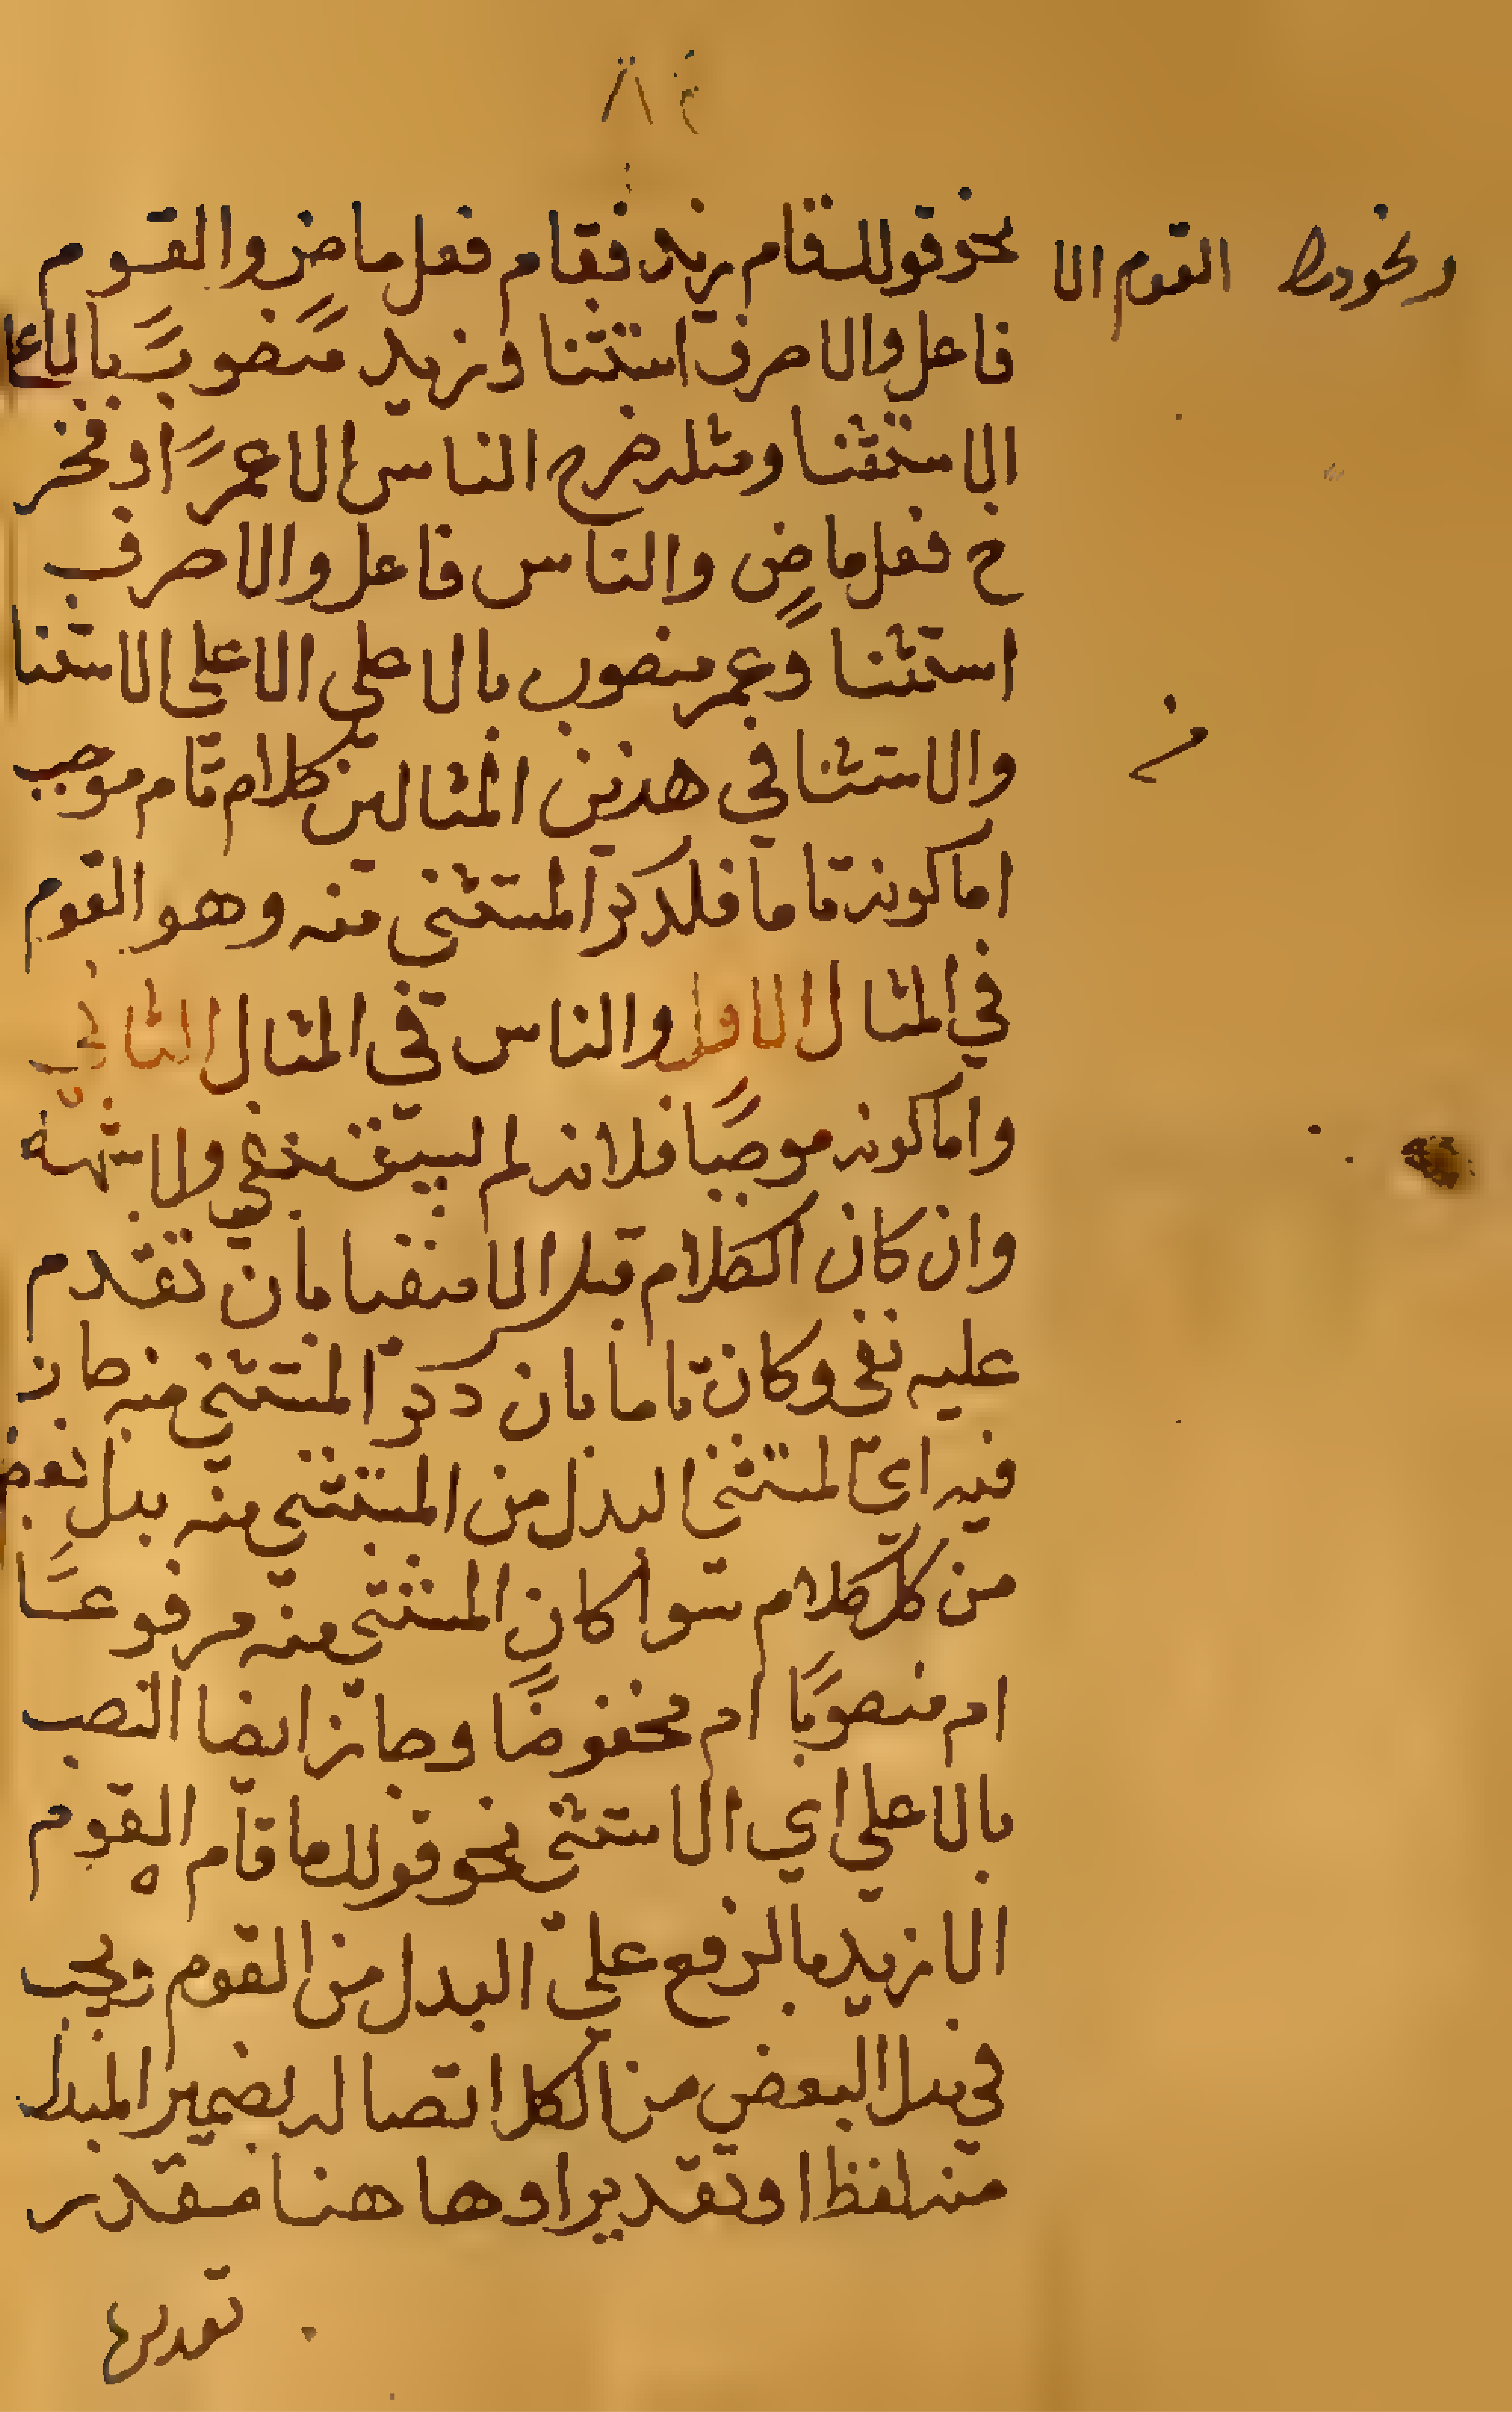 نحو قولك قام زيد فقام فعل ماض والقوم
فاعل والا حرف استثنا وزيد منصوب بالا علي
الاستثنا ومثله خرج الناس الا عمرًا فخر
ج فعل ماض والناس فاعل والا حرف
استثنا وعمر منصوب بالا علي الاستثنا
والاستثنا في هذين المثالين من كلام تام موجب
اما كونه تاما فلذكر المستثني منه وهو القوم
في المثال الاول والناس في المثال الثاني
واما كونه موجبًا فلانه لم يسبق بنفي ولا شبهه
وان كان الكلام قبل الا منفيا بان تقدم
عليه نفي وكان تاما بان ذكر المستثني منه جاز
فيه اي المستثني البدل من المستثني منه بدل بعض
من كل كلام سوا كان المستثني منه مرفوعًا
ام منصوبًا ام مخفوضًا وجاز ايضا النصب
بالا علي اي الاستثني نحو قولك ما قام القوم
الا زيد بالرفع علي البدل من القوم ويجب
في بدل البعض من الكل اتصاله بضمير المبدل
منه لفظا او تقديرا وها هنا مقدر
ونحو القوم الا
تقديره